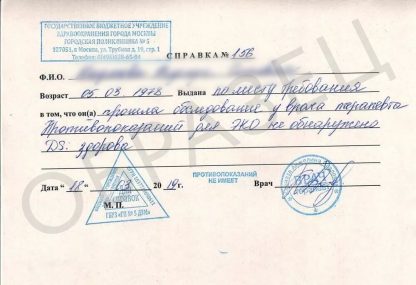 ГОСУДАРСТВЕННОЕ БЮДЖЕТНОЕ УЧРЕЖДЕНИЕ
ЗДРАВООХРАНЕНИЯ ГОРОДА МОСКВЫ
ГОРОДСКАЯ ПОЛИКЛИНИКА № 5
127051, г. Москва, ул. Трубная д. 19, стр. 1
СПРАВКА № 15В
Ф.И.О.
Возраст 05 03 1978 Выдана по месту требования
в том, что он(а) прошла обследование у врача терапевта
Противопоказаний для ЭКО не обнаружено
DS: здорова
Дата "18" 03 2019г.
ПРОТИВОПОКАЗАНИЙ
НЕ ИМЕЕТ
Врач
М.П.
ДЛЯ
СПРАВОК
ОБРАЗЕЦ